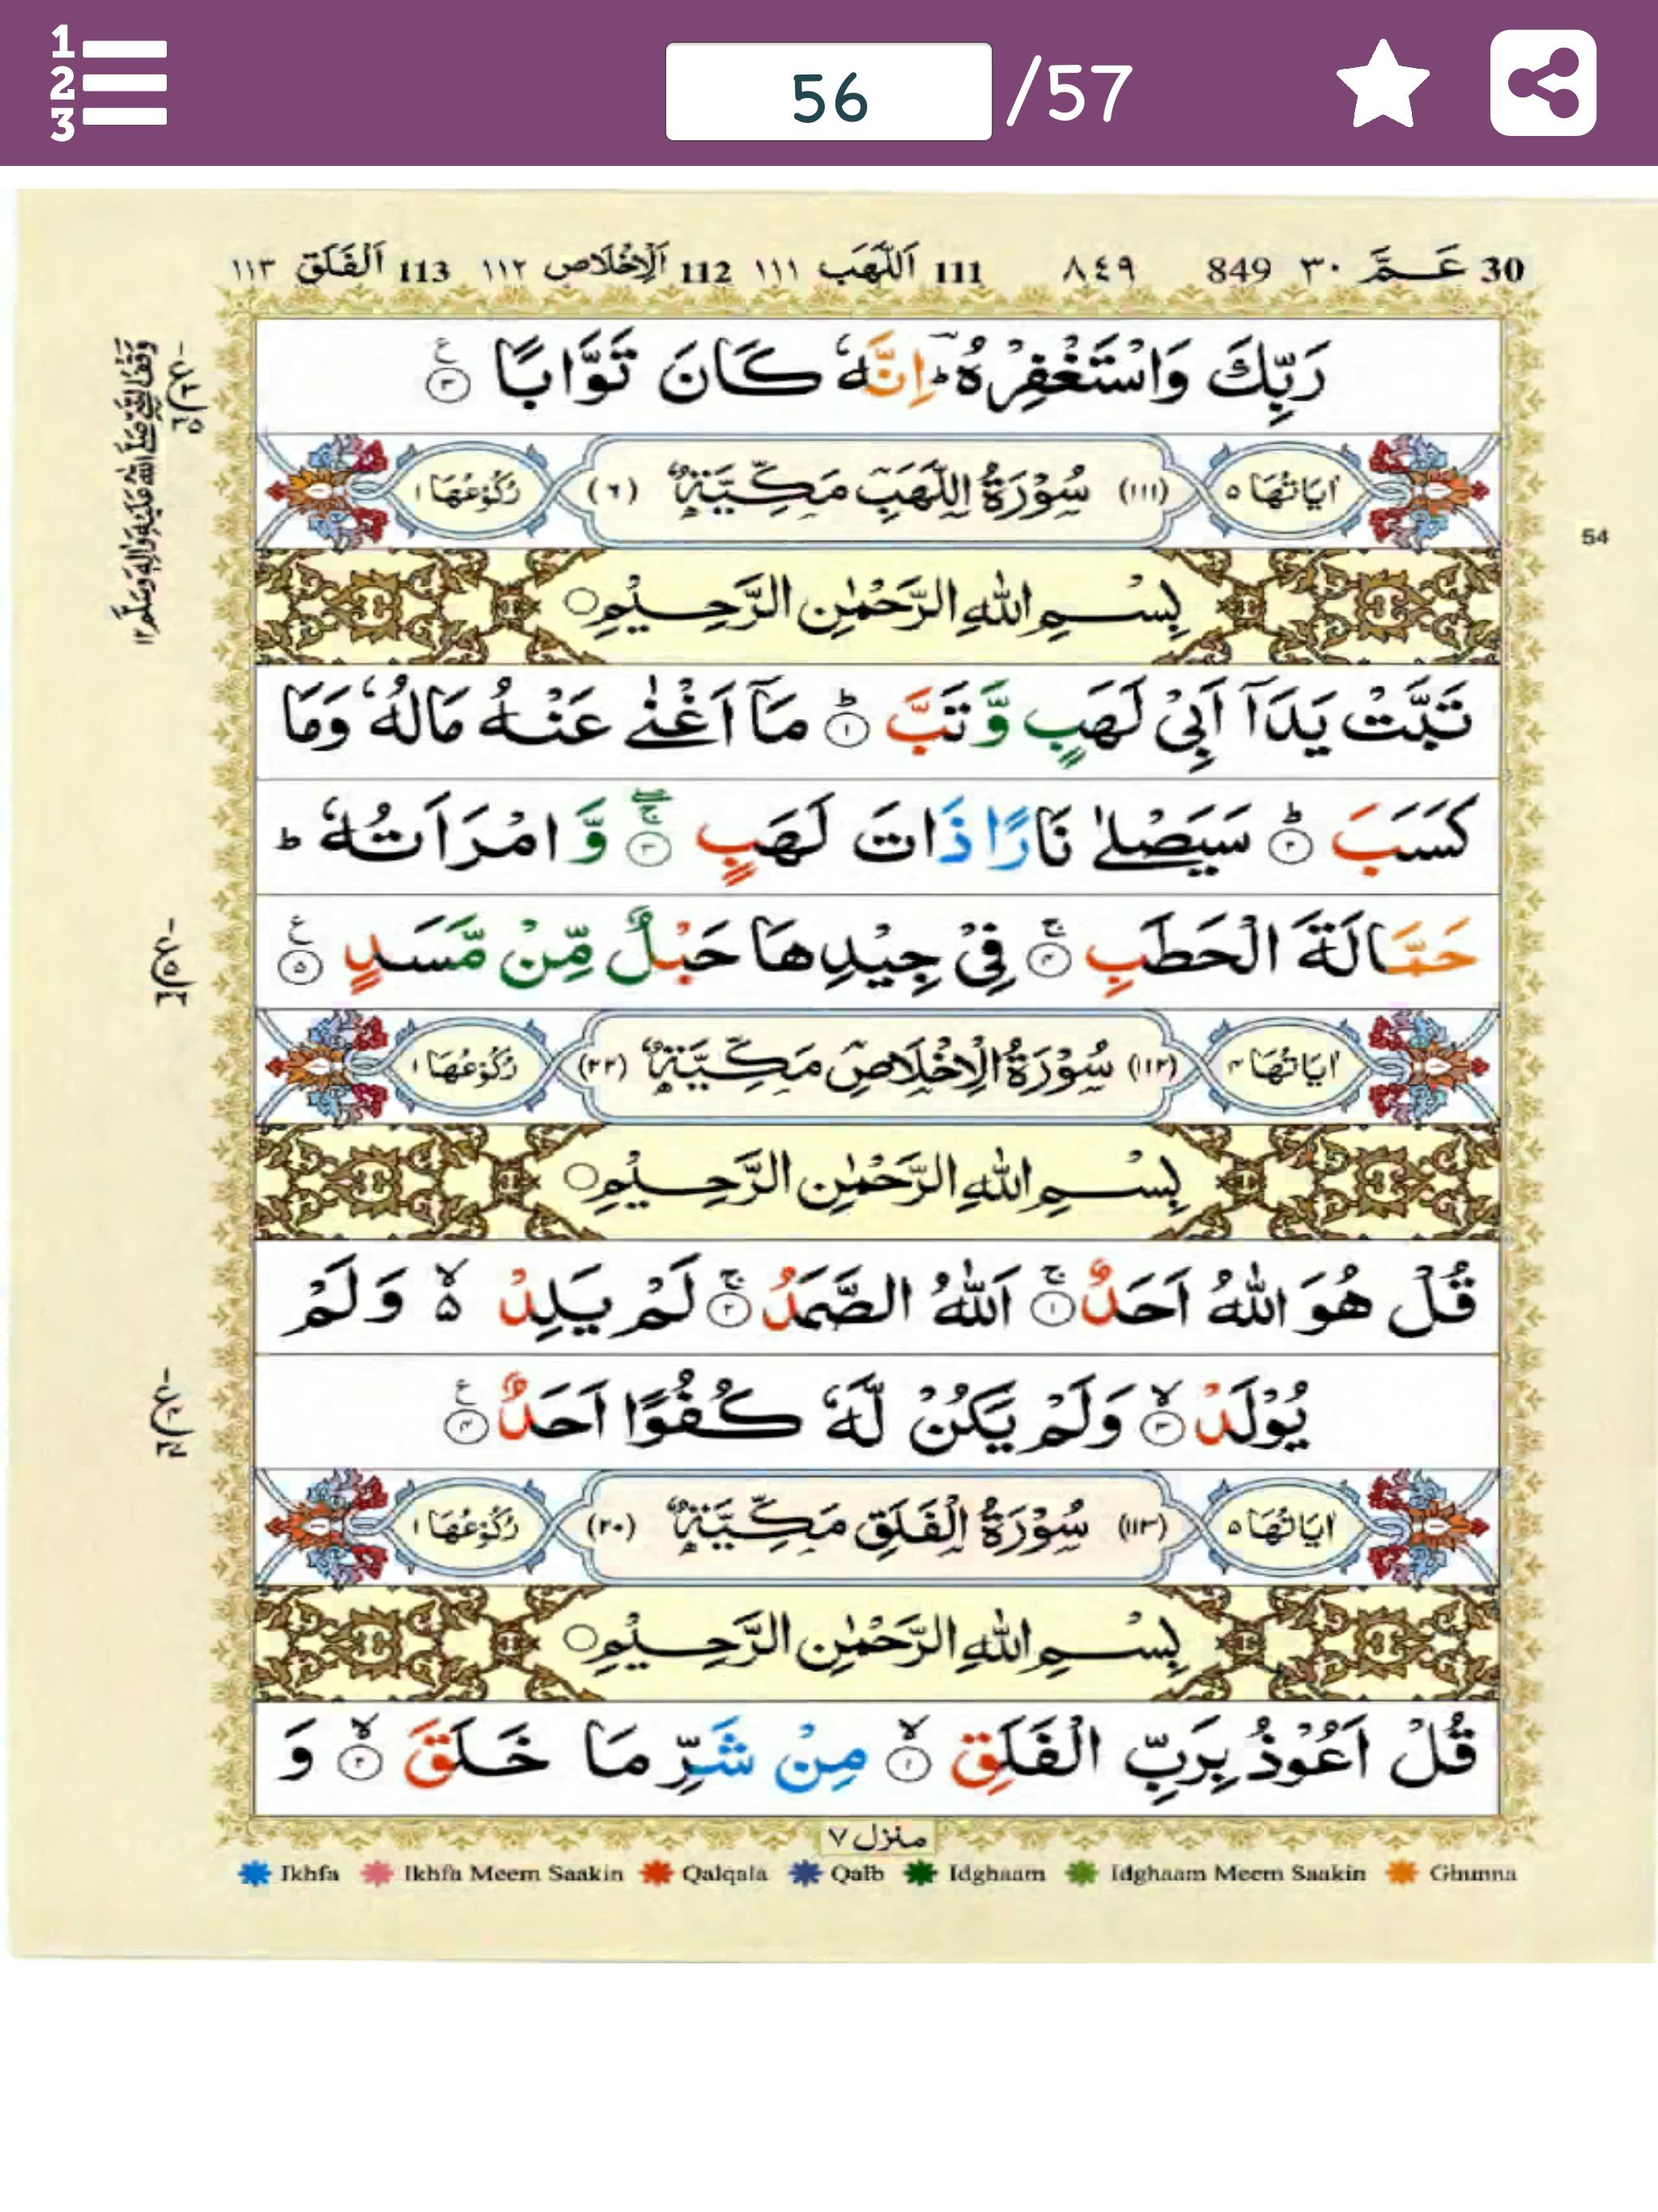 1
2
3
56 /57
30 عَمَّ ٣٠ 849 ٨٤٩ 111 اَللَّهَب ١١١ 112 اَلْاِخْلَاص ١١٢ 113 اَلْفَلَق ١١٣
رَبِّكَ وَاسْتَغْفِرْهُ ؔؕ اِنَّهٗ كَانَ تَوَّابًا ۝٣ ع
اٰيَاتُهَا ٥ (١١١) سُوْرَةُ اللَّهَبِ مَكِّيَّةٌ (٦) رُكُوْعُهَا ١
54
بِسْمِ اللّٰهِ الرَّحْمٰنِ الرَّحِيْمِ ۝
تَبَّتْ يَدَاۤ اَبِيْ لَهَبٍ وَّتَبَّ ۝١ؕ مَاۤ اَغْنٰى عَنْهُ مَالُهٗ وَمَا
كَسَبَ ۝٢ؕ سَيَصْلٰى نَارًا ذَاتَ لَهَبٍ ۝٣ۚۖ وَّامْرَاَتُهٗ ؕ
حَمَّالَةَ الْحَطَبِ ۝٤ۚ فِيْ جِيْدِهَا حَبْلٌ مِّنْ مَّسَدٍ ۝٥ ع
اٰيَاتُهَا ٤ (١١٢) سُوْرَةُ الْاِخْلَاصِ مَكِّيَّةٌ (٢٢) رُكُوْعُهَا ١
بِسْمِ اللّٰهِ الرَّحْمٰنِ الرَّحِيْمِ ۝
قُلْ هُوَ اللّٰهُ اَحَدٌ ۝١ۚ اَللّٰهُ الصَّمَدُ ۝٢ۚ لَمْ يَلِدْ ۙ۵ وَلَمْ
يُوْلَدْ ۝٣ۙ وَلَمْ يَكُنْ لَّهٗ كُفُوًا اَحَدٌ ۝٤ ع
اٰيَاتُهَا ٥ (١١٣) سُوْرَةُ الْفَلَقِ مَكِّيَّةٌ (٢٠) رُكُوْعُهَا ١
بِسْمِ اللّٰهِ الرَّحْمٰنِ الرَّحِيْمِ ۝
قُلْ اَعُوْذُ بِرَبِّ الْفَلَقِ ۝١ۙ مِنْ شَرِّ مَا خَلَقَ ۝٢ۙ وَ
منزل ٧
Ikhfa Ikhfa Meem Saakin Qalqala Qalb Idghaam Idghaam Meem Saakin Ghunna